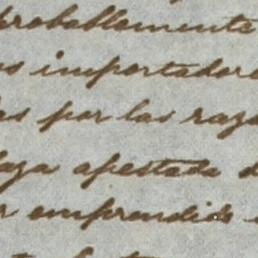 probablemente
os importadore
es por las razo
laza apestada d
r emprendió